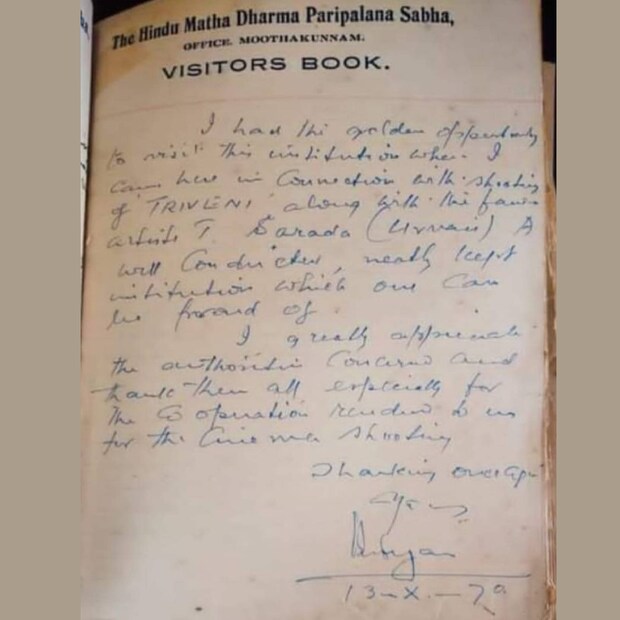 The Hindu Matha Dharma Paripalana Sabha,
OFFICE. MOOTHAKUNNAM.
VISITORS BOOK.
I had the golden opportunity
to visit this institution when I
came here in connection with shooting
of "TRIVENI" along with the famous
artists T. Sarada (Urvasi) A
well conducted, neatly kept
institution which one can
be proud of.
I greatly appreciate
the authorities concerned and
thank them all especially for
the Co operation rendered to us
for the Cinema shooting
Thanking once again
Yours
13-X-70